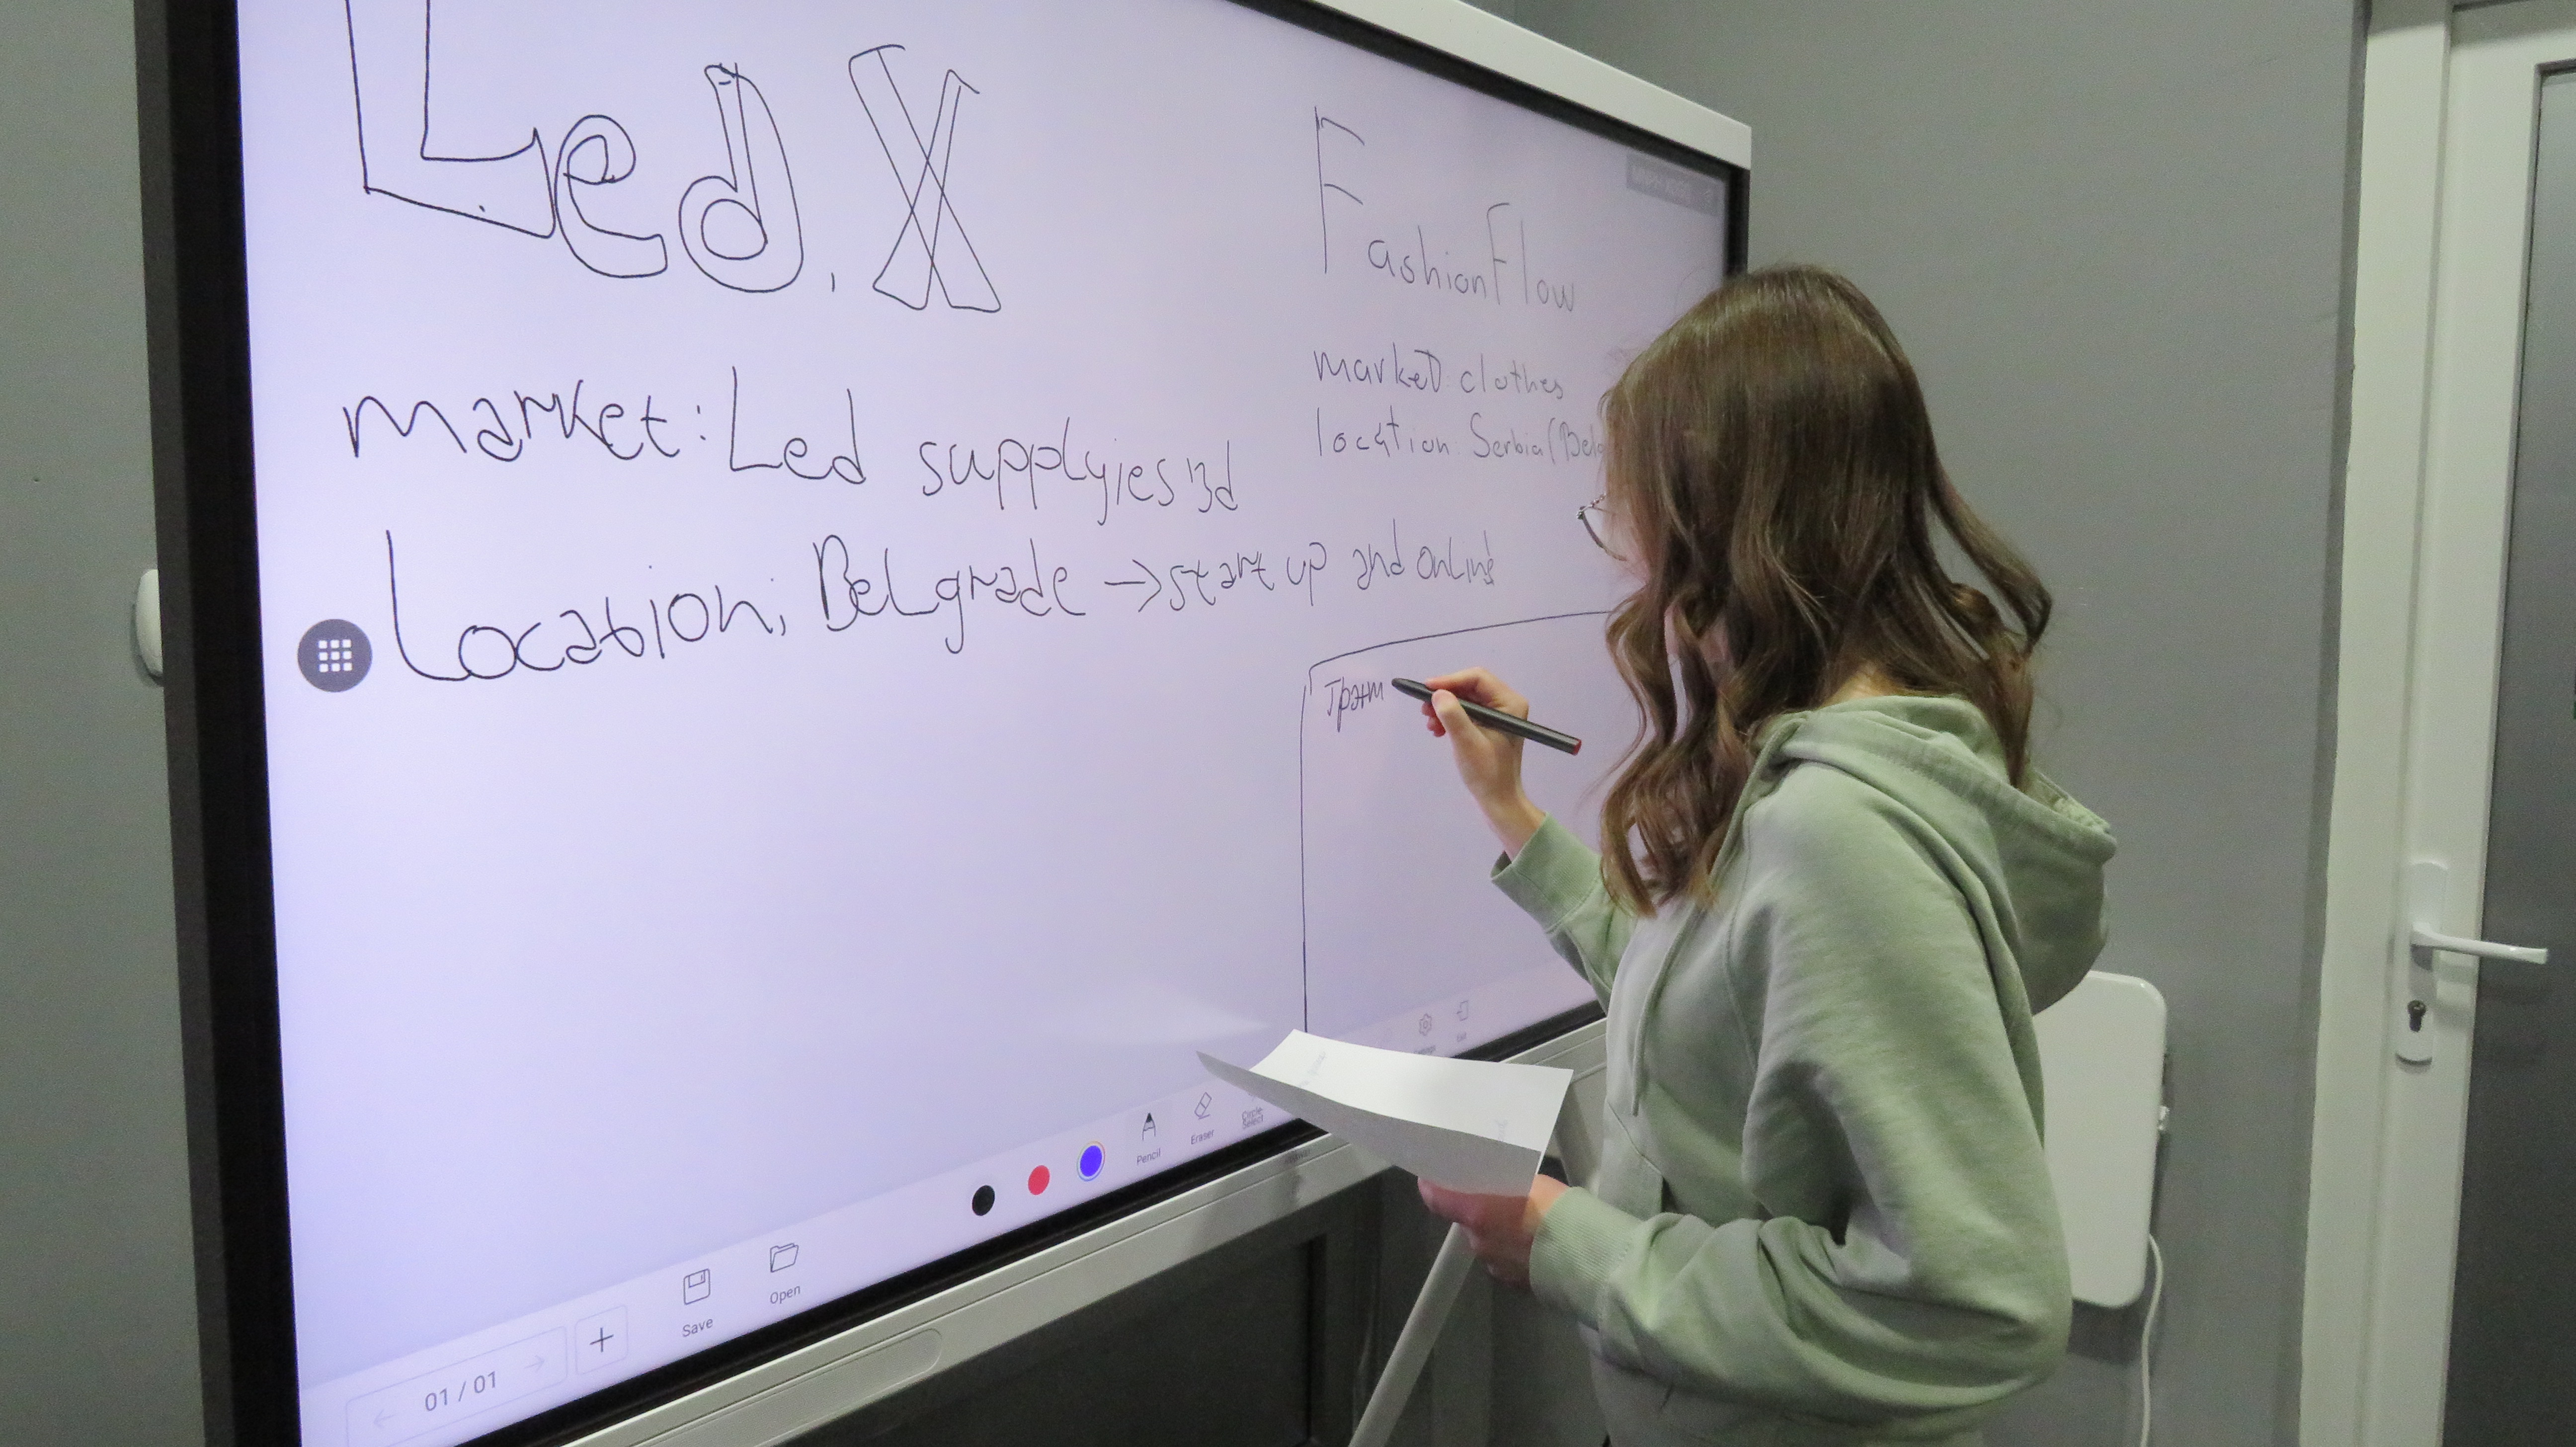 Led.X
market: Led supplyies 3d
Location; Belgrade → start up and online
FashionFlow
market clothes
location Serbia (Belg
01 / 01
Save
Open
Pencil
Eraser
Circle Select